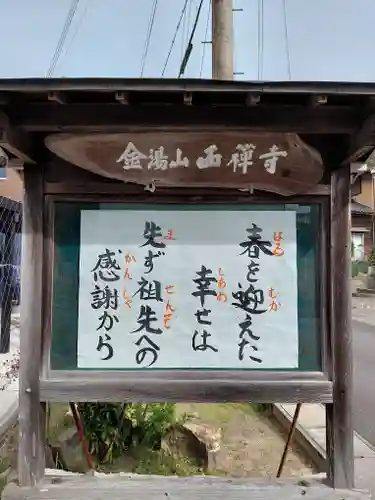 金湯山西禅寺
春を迎えた
はる むか
幸せは
しあわ
先ず祖先への
ま せんぞ
感謝から
かんしゃ